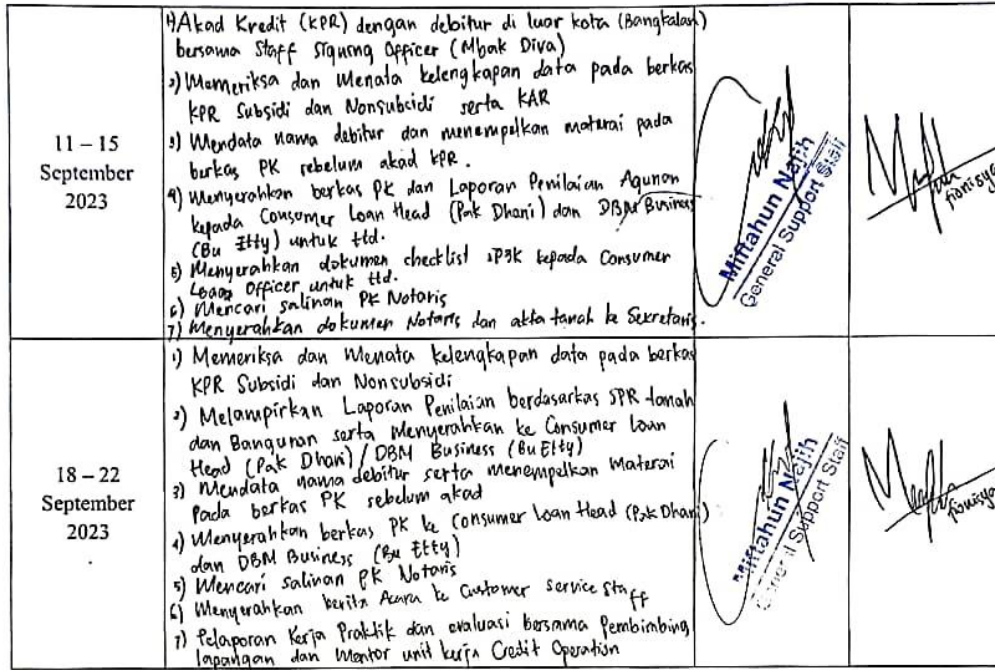 11 – 15
September
2023
1) Akad Kredit (KPR) dengan debitur di luar kota (Bangkalan)
bersama Staff Signing Officer (Mbak Diva)
2) Memeriksa dan Menata kelengkapan data pada berkas
KPR Subsidi dan Nonsubsidi serta KAR
3) Mendata nama debitur dan menempelkan materai pada
berkas PK sebelum akad KPR.
4) Menyerahkan berkas PK dan Laporan Penilaian Agunan
kepada Consumer Loan Head (Pak Dhani) dan DBM Business
(Bu Etty) untuk ttd.
5) Menyerahkan dokumen checklist SP3K kepada Consumer
Loan Officer untuk ttd.
6) Mencari salinan PK Notaris
7) Menyerahkan dokumen Notaris dan akta tanah ke Sekretaris.
Miftahun Najih
General Support Staff
18 – 22
September
2023
1) Memeriksa dan Menata kelengkapan data pada berkas
KPR Subsidi dan Nonsubsidi
2) Melampirkan Laporan Penilaian berdasarkas SPR tanah
dan Bangunan serta Menyerahkan ke Consumer Loan
Head (Pak Dhani) / DBM Business (Bu Etty)
3) Mendata nama debitur serta menempelkan Materai
Pada berkas PK sebelum akad
4) Menyerahkan berkas PK ke Consumer Loan Head (Pak Dhani)
dan DBM Business (Bu Etty)
5) Mencari salinan PK Notaris
6) Menyerahkan berita Acara ke Customer service Staff
7) Pelaporan Kerja Praktik dan evaluasi bersama Pembimbing
lapangan dan Mentor unit kerja Credit Operation
Miftahun Najih
General Support Staff